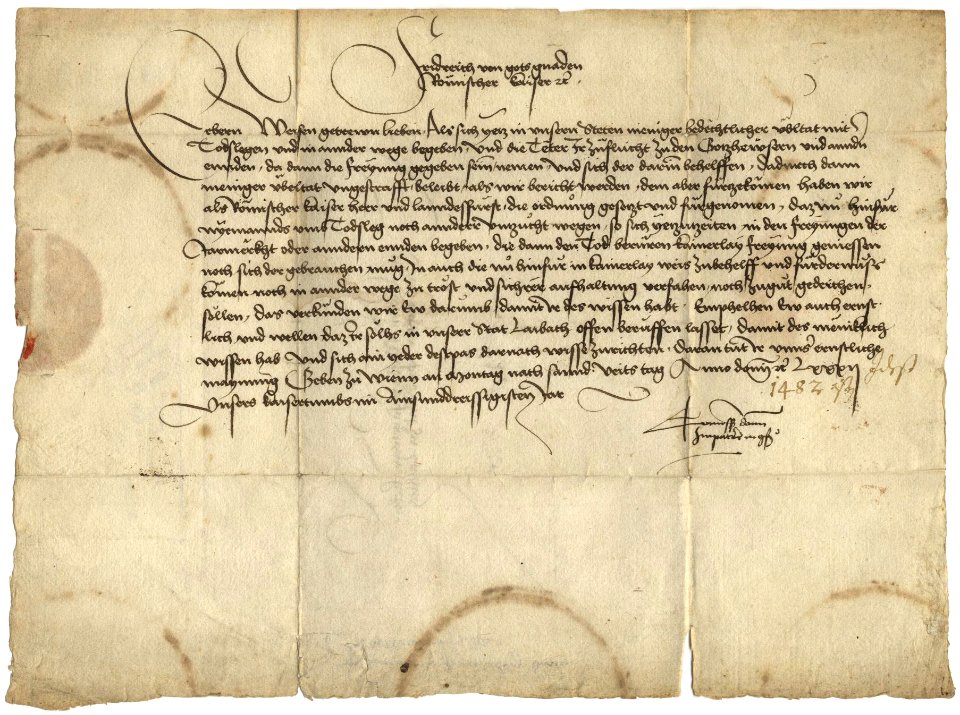 Fridreich von gots gnaden
Römischer Kaiser etc.
Erbern Weisen getrewn lieben. Als sich yetz in unsern Steten meniger bedechtlicher ubltat mit
Todslegen und in annder wege begeben, und die Teter ir zuflucht zu den Gotzhewsern und anndn
ennden, da dann die freyung gegeben sein nemen und sich der darin behelffen, dadurch dann
meniger ubeltat ungestrafft beleibt, als wir bericht werden, dem aber fürzekomen haben wir
als Römischer Kaiser herr und lanndesfürst, die ordnung gesetzt und fürgenomen, daz nu hinfür
nyemannds umb Todsleg noch annder unzucht wegen, so sich yenzuzeiten in den freyungen der
Jarmerkht oder anderen ennden begeben, die dann den Tod beruren kainerlay freyung geniessen
noch sich der gebrauchen mug, In auch die nu hinfür in kainerlay weis zubehelff und fürdernuss
komen noch in annder wege zu trost und irer aufhaltung verfahen, noch zugut gedeichen
sullen, das verkünden wir Ew darumb, damit ir des wissen habt. Emphelhen Ew auch ernst-
lich und wellen daz ir solhs in unser Stat Laibach offen berueffen lasset, damit des meniklich
wissen hab und sich ain yeder destpas darnach wisse zurichten. Daran tut ir unnser ernstliche
maynung Geben zu Wienn an Montag nach sannd Veits tag Anno domini etc. LXXXII
1482
Unsers Kaisertumbs im Ainsunddreissigisten Jar
Commissio domini
Imperatoris in